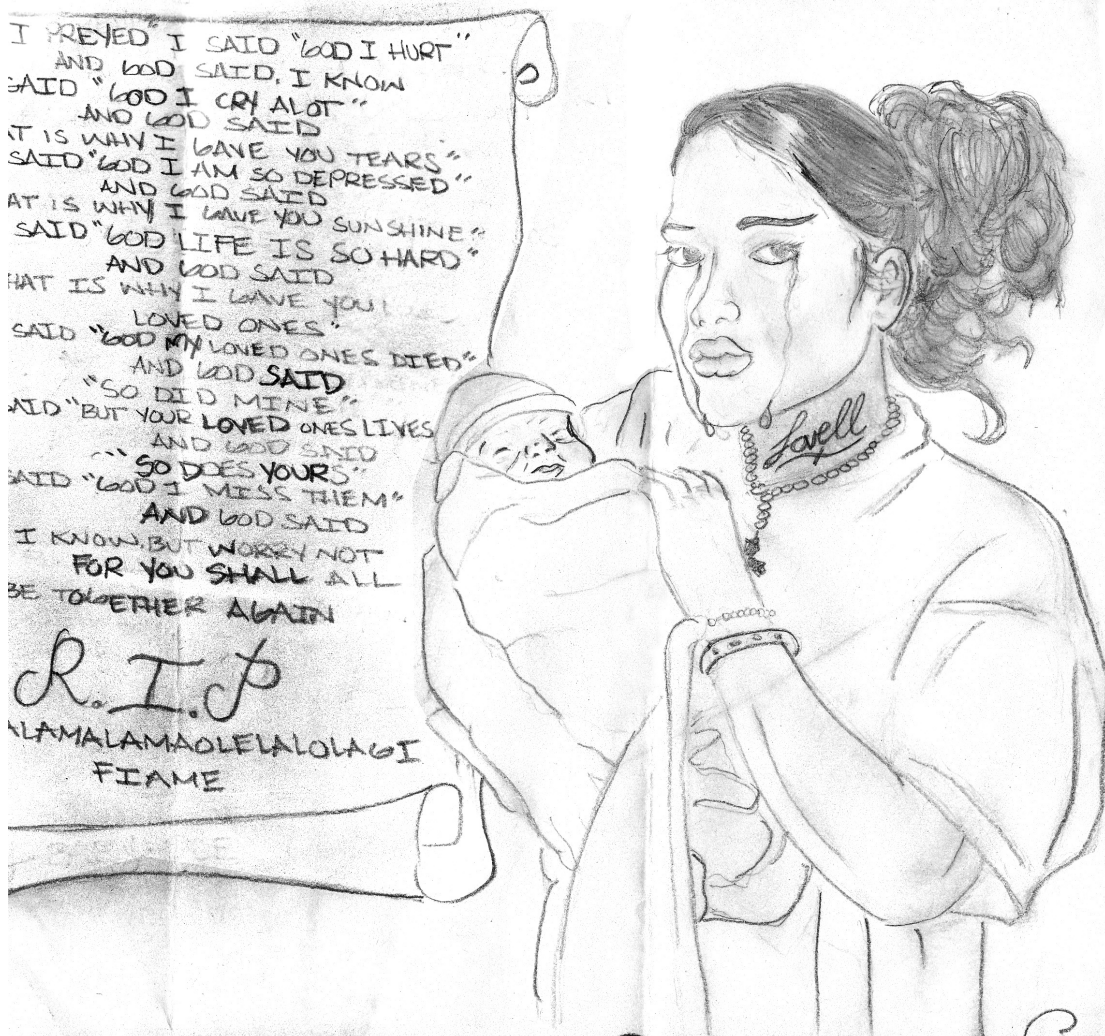 I PREYED" I SAID "GOD I HURT"
AND GOD SAID, I KNOW
SAID "GOD I CRY ALOT"
AND GOD SAID
AT IS WHY I GAVE YOU TEARS"
SAID "GOD I AM SO DEPRESSED"
AND GOD SAID
AT IS WHY I GAVE YOU SUNSHINE"
SAID "GOD LIFE IS SO HARD"
AND GOD SAID
HAT IS WHY I GAVE YOU
LOVED ONES"
SAID "GOD MY LOVED ONES DIED"
AND GOD SAID
"SO DID MINE"
SAID "BUT YOUR LOVED ONES LIVES
AND GOD SAID
"SO DOES YOURS"
SAID "GOD I MISS THEM"
AND GOD SAID
I KNOW, BUT WORRY NOT
FOR YOU SHALL ALL
BE TOGETHER AGAIN
R.I.P
ALAMALAMAOLELALOLAGI
FIAME
Lovell